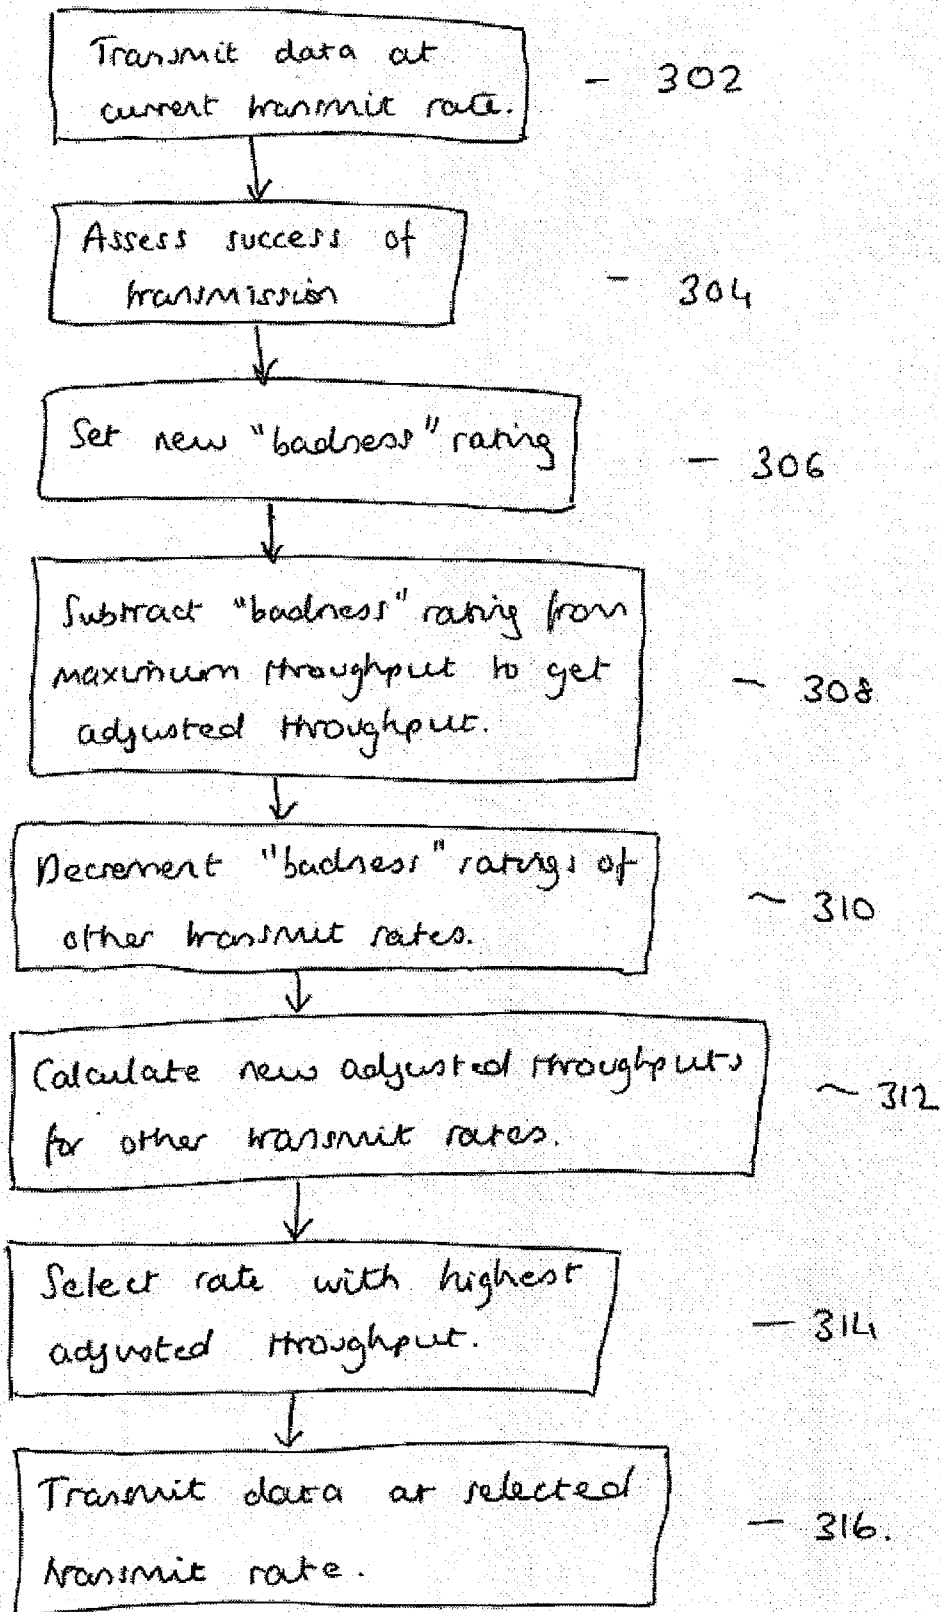 Transmit data at
current transmit rate.
- 302
Assess success of
transmission
- 304
Set new "badness" rating
- 306
Subtract "badness" rating from
maximum throughput to get
adjusted throughput.
- 308
Decrement "badness" ratings of
other transmit rates.
~ 310
Calculate new adjusted throughputs
for other transmit rates.
~ 312
Select rate with highest
adjusted throughput.
- 314
Transmit data at selected
transmit rate.
- 316.